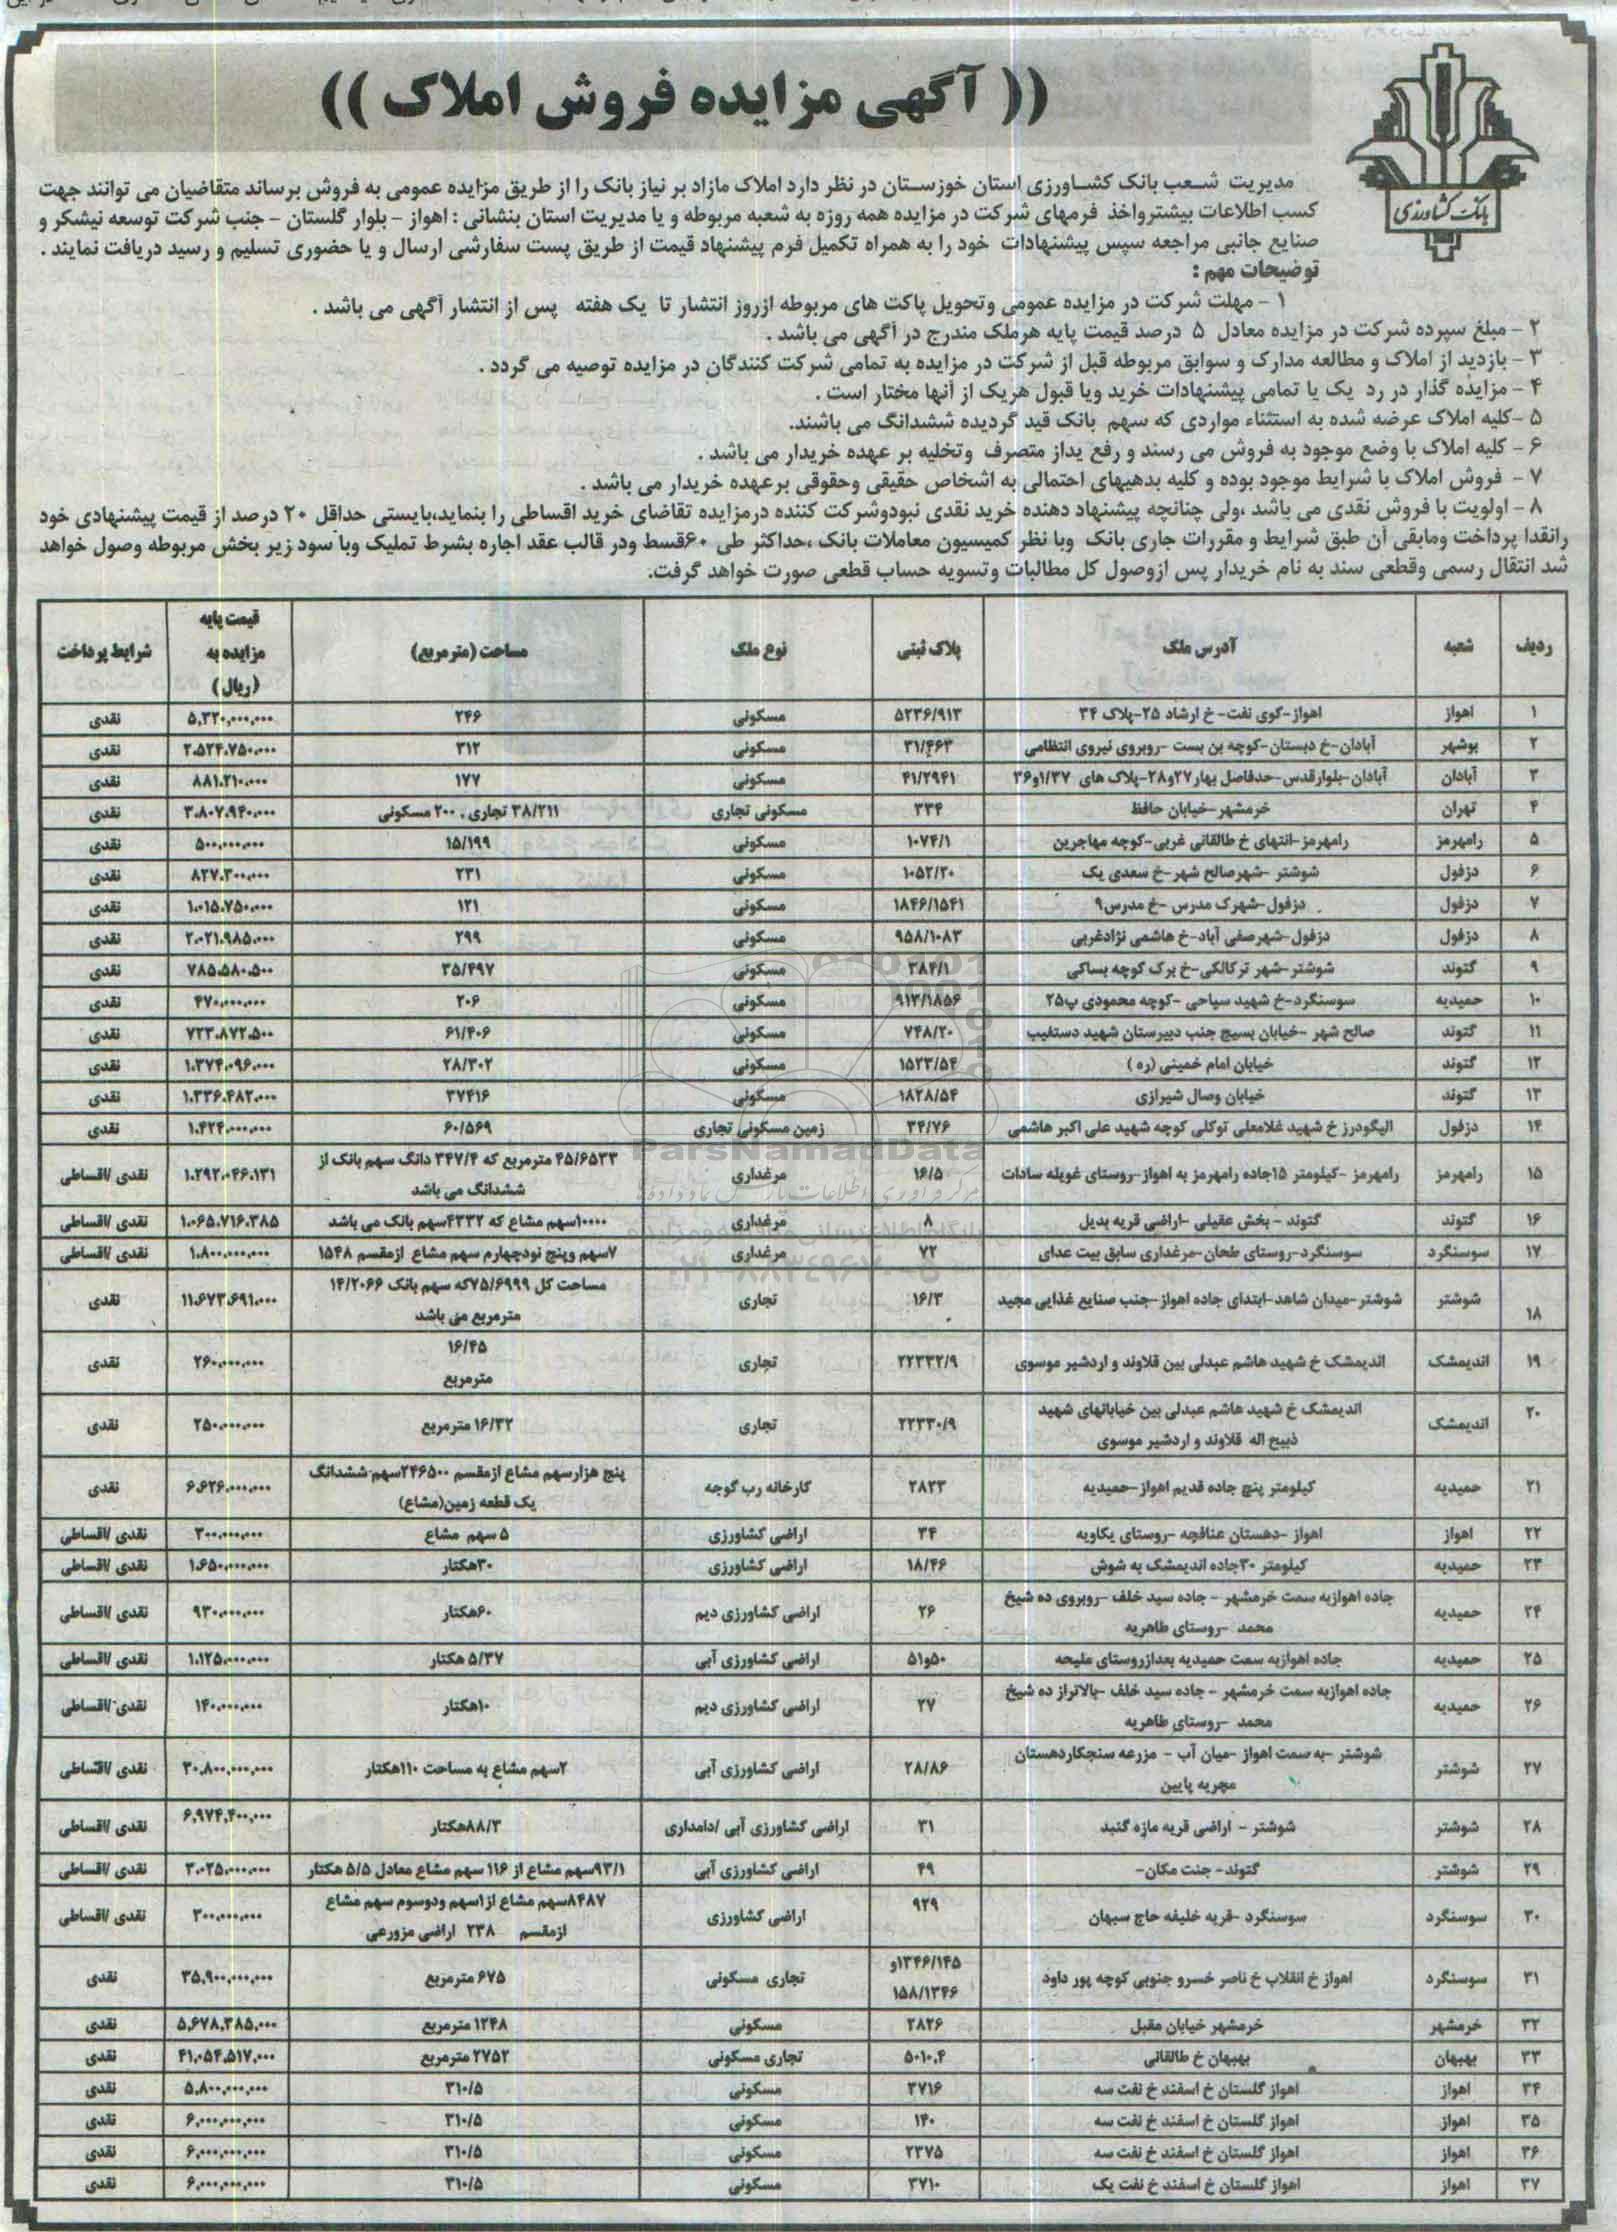 (( آگهی مزایده فروش املاک ))
بانک کشاورزی
مدیریت شعب بانک کشاورزی استان خوزستان در نظر دارد املاک مازاد بر نیاز بانک را از طریق مزایده عمومی به فروش برساند متقاضیان می توانند جهت
کسب اطلاعات بیشترواخذ فرمهای شرکت در مزایده همه روزه به شعبه مربوطه و یا مدیریت استان بنشانی : اهواز - بلوار گلستان - جنب شرکت توسعه نیشکر و
صنایع جانبی مراجعه سپس پیشنهادات خود را به همراه تکمیل فرم پیشنهاد قیمت از طریق پست سفارشی ارسال و یا حضوری تسلیم و رسید دریافت نمایند .
توضیحات مهم :
۱ - مهلت شرکت در مزایده عمومی وتحویل پاکت های مربوطه ازروز انتشار تا یک هفته پس از انتشار آگهی می باشد .
۲ - مبلغ سپرده شرکت در مزایده معادل ۵ درصد قیمت پایه هرملک مندرج در آگهی می باشد .
۳ - بازدید از املاک و مطالعه مدارک و سوابق مربوطه قبل از شرکت در مزایده به تمامی شرکت کنندگان در مزایده توصیه می گردد .
۴ - مزایده گذار در رد یک یا تمامی پیشنهادات خرید ویا قبول هریک از آنها مختار است .
۵ -کلیه املاک عرضه شده به استثناء مواردی که سهم بانک قید گردیده ششدانگ می باشند.
۶ - کلیه املاک با وضع موجود به فروش می رسند و رفع یداز متصرف وتخلیه بر عهده خریدار می باشد .
۷ - فروش املاک با شرایط موجود بوده و کلیه بدهیهای احتمالی به اشخاص حقیقی وحقوقی برعهده خریدار می باشد .
۸ - اولویت با فروش نقدی می باشد ،ولی چنانچه پیشنهاد دهنده خرید نقدی نبودوشرکت کننده درمزایده تقاضای خرید اقساطی را بنماید،بایستی حداقل ۲۰ درصد از قیمت پیشنهادی خود
رانقدا پرداخت ومابقی آن طبق شرایط و مقررات جاری بانک وبا نظر کمیسیون معاملات بانک ،حداکثر طی ۶۰قسط ودر قالب عقد اجاره بشرط تملیک وبا سود زیر بخش مربوطه وصول خواهد
شد انتقال رسمی وقطعی سند به نام خریدار پس ازوصول کل مطالبات وتسویه حساب قطعی صورت خواهد گرفت.
ردیف شعبه آدرس ملک پلاک ثبتی نوع ملک مساحت (مترمربع) قیمت پایه مزایده به (ریال) شرایط پرداخت
۱ اهواز اهواز-کوی نفت- خ ارشاد ۲۵-پلاک ۳۴ ۵۲۳۶/۹۱۳ مسکونی ۲۴۶ ۵,۳۲۰,۰۰۰,۰۰۰ نقدی
۲ بوشهر آبادان-خ دبستان-کوچه بن بست -روبروی نیروی انتظامی ۳۱/۴۶۳ مسکونی ۳۱۲ ۲.۵۲۴.۷۵۰.۰۰۰ نقدی
۳ آبادان آبادان-بلوارقدس-حدفاصل بهار۲۷و۲۸-پلاک های ۱/۳۷و۳۶ ۴۱/۲۹۴۱ مسکونی ۱۷۷ ۸۸۱.۲۱۰.۰۰۰ نقدی
۴ تهران خرمشهر-خیابان حافظ ۳۳۴ مسکونی تجاری ۳۸/۲۱۱ تجاری ، ۲۰۰ مسکونی ۳.۸۰۷.۹۴۰.۰۰۰ نقدی
۵ رامهرمز رامهرمز-انتهای خ طالقانی غربی-کوچه مهاجرین ۱۰۷۴/۱ مسکونی ۱۵/۱۹۹ ۵۰۰.۰۰۰.۰۰۰ نقدی
۶ دزفول شوشتر -شهرصالح شهر-خ سعدی یک ۱۰۵۲/۲۰ مسکونی ۲۳۱ ۸۲۷.۳۰۰.۰۰۰ نقدی
۷ دزفول دزفول-شهرک مدرس -خ مدرس۹ ۱۸۴۶/۱۵۴۱ مسکونی ۱۲۱ ۱.۰۱۵.۷۵۰.۰۰۰ نقدی
۸ دزفول دزفول-شهرصفی آباد-خ هاشمی نژادغربی ۹۵۸/۱۰۸۳ مسکونی ۲۹۹ ۲.۰۲۱.۹۸۵.۰۰۰ نقدی
۹ گتوند شوشتر-شهر ترکالکی-خ برک کوچه بساکی ۳۸۴/۱ مسکونی ۳۵/۴۹۷ ۷۸۵.۵۸۰.۵۰۰ نقدی
۱۰ حمیدیه سوسنگرد-خ شهید سیاحی -کوچه محمودی پ۲۵ ۹۱۳/۱۸۵۶ مسکونی ۲۰۶ ۴۷۰.۰۰۰.۰۰۰ نقدی
۱۱ گتوند صالح شهر -خیابان بسیج جنب دبیرستان شهید دستغیب ۷۴۸/۲۰ مسکونی ۶۱/۴۰۶ ۷۲۳.۸۷۲.۵۰۰ نقدی
۱۲ گتوند خیابان امام خمینی (ره ) ۱۵۲۳/۵۴ مسکونی ۲۸/۳۰۲ ۱.۳۷۴.۰۹۶.۰۰۰ نقدی
۱۳ گتوند خیابان وصال شیرازی ۱۸۲۸/۵۴ مسکونی ۳۷۴۱۶ ۱.۳۳۶.۴۸۲.۰۰۰ نقدی
۱۴ دزفول الیگودرز خ شهید غلامعلی توکلی کوچه شهید علی اکبر هاشمی ۳۴/۷۶ زمین مسکونی تجاری ۶۰/۵۶۹ ۱.۴۲۴.۰۰۰.۰۰۰ نقدی
۱۵ رامهرمز رامهرمز -کیلومتر ۱۵جاده رامهرمز به اهواز-روستای غویله سادات ۱۶/۵ مرغداری ۴۵/۶۵۳۳ مترمربع که ۳۴۷/۴ دانگ سهم بانک از ششدانگ می باشد ۱.۲۹۲.۰۴۶.۱۳۱ نقدی /اقساطی
۱۶ گتوند گتوند - بخش عقیلی -اراضی قریه بدیل ۸ مرغداری ۱۰۰۰۰سهم مشاع که ۴۳۳۲سهم بانک می باشد ۱.۰۶۵.۷۱۶.۳۸۵ نقدی /اقساطی
۱۷ سوسنگرد سوسنگرد-روستای طحان-مرغداری سابق بیت عدای ۷۲ مرغداری ۷سهم وپنج نودچهارم سهم مشاع ازمقسم ۱۵۴۸ ۱.۸۰۰.۰۰۰.۰۰۰ نقدی /اقساطی
۱۸ شوشتر شوشتر-میدان شاهد-ابتدای جاده اهواز-جنب صنایع غذایی مجید ۱۶/۳ تجاری مساحت کل ۷۵/۶۹۹۹که سهم بانک ۱۴/۲۰۶۶ مترمربع می باشد ۱۱.۶۷۳.۶۹۱.۰۰۰ نقدی
۱۹ اندیمشک اندیمشک خ شهید هاشم عبدلی بین قلاوند و اردشیر موسوی ۲۲۳۳۲/۹ تجاری ۱۶/۴۵ مترمربع ۲۶۰.۰۰۰.۰۰۰ نقدی
۲۰ اندیمشک اندیمشک خ شهید هاشم عبدلی بین خیابانهای شهید ذبیح اله قلاوند و اردشیر موسوی ۲۲۳۳۰/۹ تجاری ۱۶/۳۲ مترمربع ۲۵۰.۰۰۰.۰۰۰ نقدی
۲۱ حمیدیه کیلومتر پنج جاده قدیم اهواز-حمیدیه ۲۸۲۳ کارخانه رب گوجه پنج هزارسهم مشاع ازمقسم ۲۴۶۵۰۰سهم ششدانگ یک قطعه زمین(مشاع) ۶.۶۲۶.۰۰۰.۰۰۰ نقدی
۲۲ اهواز اهواز -دهستان عنافچه -روستای یکاویه ۳۴ اراضی کشاورزی ۵ سهم مشاع ۳۰۰.۰۰۰.۰۰۰ نقدی /اقساطی
۲۳ حمیدیه کیلومتر ۳۰جاده اندیمشک به شوش ۱۸/۴۶ اراضی کشاورزی ۳۰هکتار ۱.۶۵۰.۰۰۰.۰۰۰ نقدی /اقساطی
۲۴ حمیدیه جاده اهوازبه سمت خرمشهر - جاده سید خلف -روبروی ده شیخ محمد -روستای طاهریه ۲۶ اراضی کشاورزی دیم ۶۰هکتار ۹۳۰.۰۰۰.۰۰۰ نقدی /اقساطی
۲۵ حمیدیه جاده اهوازبه سمت حمیدیه بعدازروستای ملیحه ۵۰و۵۱ اراضی کشاورزی آبی ۵/۳۷ هکتار ۱.۱۲۵.۰۰۰.۰۰۰ نقدی /اقساطی
۲۶ حمیدیه جاده اهوازبه سمت خرمشهر - جاده سید خلف -بالاتراز ده شیخ محمد -روستای طاهریه ۲۷ اراضی کشاورزی دیم ۱۰هکتار ۱۴۰.۰۰۰.۰۰۰ نقدی /اقساطی
۲۷ شوشتر شوشتر -به سمت اهواز -میان آب - مزرعه سنجکاردهستان مجریه پایین ۲۸/۸۶ اراضی کشاورزی آبی ۲سهم مشاع به مساحت ۱۱۰هکتار ۳۰.۸۰۰.۰۰۰.۰۰۰ نقدی /اقساطی
۲۸ شوشتر شوشتر - اراضی قریه مازه گنبد ۳۱ اراضی کشاورزی آبی /دامداری ۸۸/۳هکتار ۶,۹۷۴,۴۰۰,۰۰۰ نقدی /اقساطی
۲۹ شوشتر گتوند- جنت مکان- ۴۹ اراضی کشاورزی آبی ۹۳/۱سهم مشاع از ۱۱۶ سهم مشاع معادل ۵/۵ هکتار ۳.۰۲۵.۰۰۰.۰۰۰ نقدی /اقساطی
۳۰ سوسنگرد سوسنگرد -قریه خلیفه حاج سبهان ۹۲۹ اراضی کشاورزی ۸۴۸۷سهم مشاع از۱سهم ودوسوم سهم مشاع ازمقسم ۲۳۸ اراضی مزورعی ۳۰۰.۰۰۰.۰۰۰ نقدی /اقساطی
۳۱ سوسنگرد اهواز خ انقلاب خ ناصر خسرو جنوبی کوچه پور داود ۱۳۴۶/۱۴۵و ۱۵۸/۱۳۴۶ تجاری مسکونی ۶۷۵ مترمربع ۳۵,۹۰۰,۰۰۰,۰۰۰ نقدی
۳۲ خرمشهر خرمشهر خیابان مقبل ۲۸۲۶ مسکونی ۱۲۴۸ مترمربع ۵,۶۷۸,۳۸۵,۰۰۰ نقدی
۳۳ بهبهان بهبهان خ طالقانی ۵۰۱۰.۴ تجاری مسکونی ۲۷۵۲ مترمربع ۴۱,۰۵۴,۵۱۷,۰۰۰ نقدی
۳۴ اهواز اهواز گلستان خ اسفند خ نفت سه ۳۷۱۶ مسکونی ۳۱۰/۵ ۵,۸۰۰,۰۰۰,۰۰۰ نقدی
۳۵ اهواز اهواز گلستان خ اسفند خ نفت سه ۱۴۰ مسکونی ۳۱۰/۵ ۶,۰۰۰,۰۰۰,۰۰۰ نقدی
۳۶ اهواز اهواز گلستان خ اسفند خ نفت سه ۲۳۷۵ مسکونی ۳۱۰/۵ ۶,۰۰۰,۰۰۰,۰۰۰ نقدی
۳۷ اهواز اهواز گلستان خ اسفند خ نفت یک ۳۷۱۰ مسکونی ۳۱۰/۵ ۶,۰۰۰,۰۰۰,۰۰۰ نقدی
ParsNamadData
۰۲۱-۸۸۳۴۹۶۷۰-۵